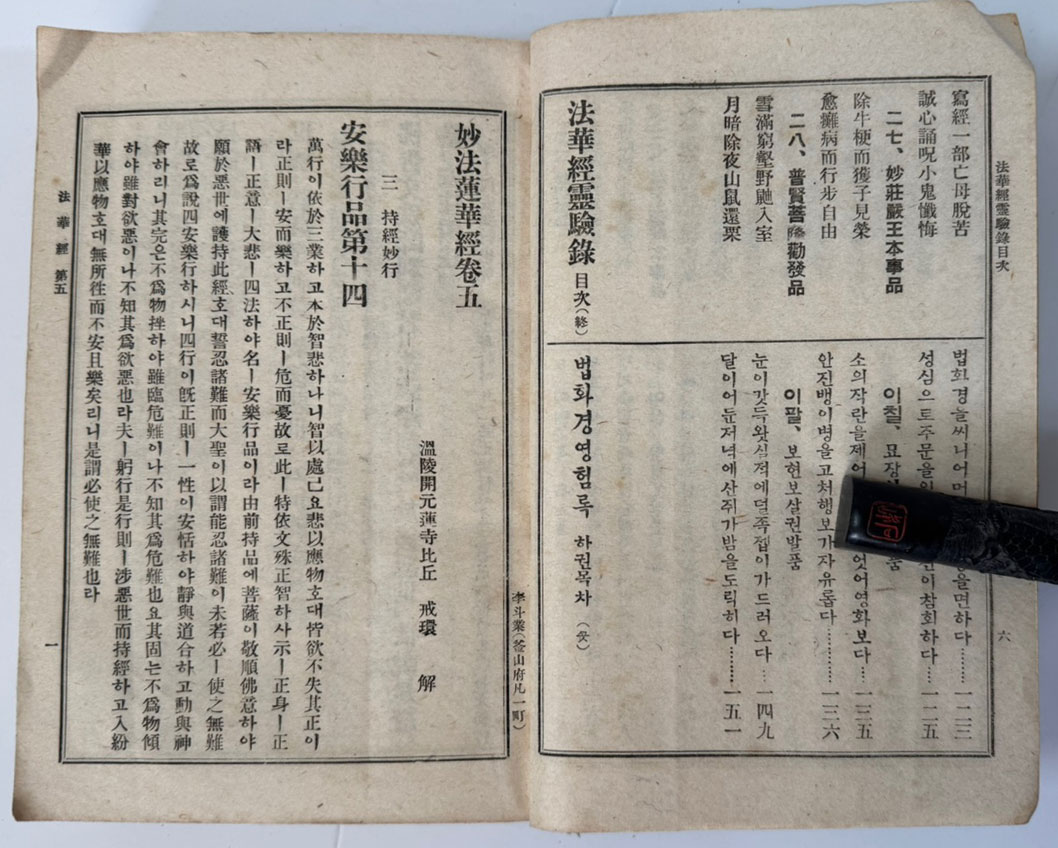 法華經靈驗錄目次
寫經一部亡母脫苦
誠心誦呪小鬼懺悔
二七、妙莊嚴王本事品
除牛梗而獲子見榮
愈癱病而行步自由
二八、普賢菩薩勸發品
雪滿窮壑野鼬入室
月暗除夜山鼠還栗
法華經靈驗錄 目次 (終)
법화경을씨니어머 을면하다……一二三
성심으로주문을 이참회하다……一二五
이칠、묘장 품
소의작란을제어 엇어영화보다……一三五
안진뱅이병을고처행보가자유롭다……一三六
이팔、보현보살권발품
눈이갓득왓실적에덜족젭이가드러오다……一四九
달이어둔저녁에산쥐가밤을도릭히다……一五一
법화경영험록 하권목차 (畢)
六
李斗業(釜山府凡一町)
妙法蓮華經卷五
溫陵開元蓮寺比丘 戒環 解
三 持經妙行
安樂行品第十四
萬行이依於三業하고本於智悲하나니智以處己요悲以應物호대皆欲不失其正이
라正則ㅣ安而樂하고不正則ㅣ危而憂故로此ㅣ特依文殊正智하사示ㅣ正身ㅣ正
語ㅣ正意ㅣ大悲ㅣ四法하야名ㅣ安樂行品이라由前持品에菩薩이敬順佛意하야
願於惡世에護持此經호대誓忍諸難而大聖이以謂能忍諸難이未若必ㅣ使之無難
故로爲說四安樂行하시니四行이旣正則ㅣ一性이安恬하야靜與道合하고動與神
會하리니其完은不爲物挫하야雖臨危難이나不知其爲危難也요其固는不爲物傾
하야雖對欲惡이나不知其爲欲惡也라夫ㅣ躬行是行則ㅣ涉惡世而持經하고入紛
華以應物호대無所徃而不安且樂矣리니是謂必使之無難也라
法華經 第五
一